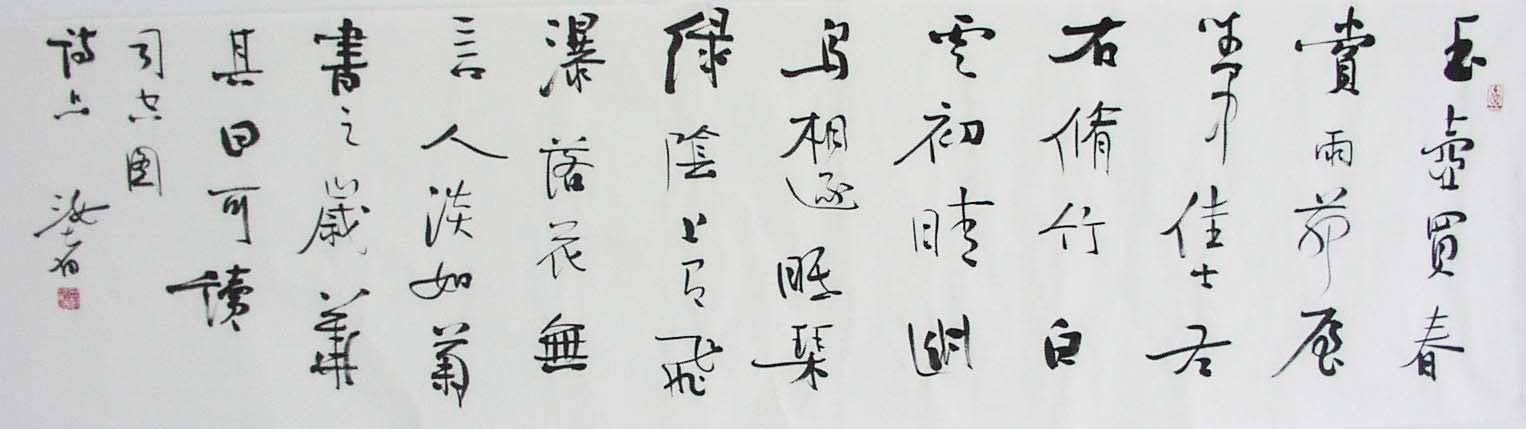 玉壺買春
賞雨茆屋
坐中佳士左
右脩竹白
雲初晴幽
鳥相逐眠琴
綠陰上有飛
瀑落花無
言人淡如菊
書之歲華
其曰可讀
司空圖
詩品